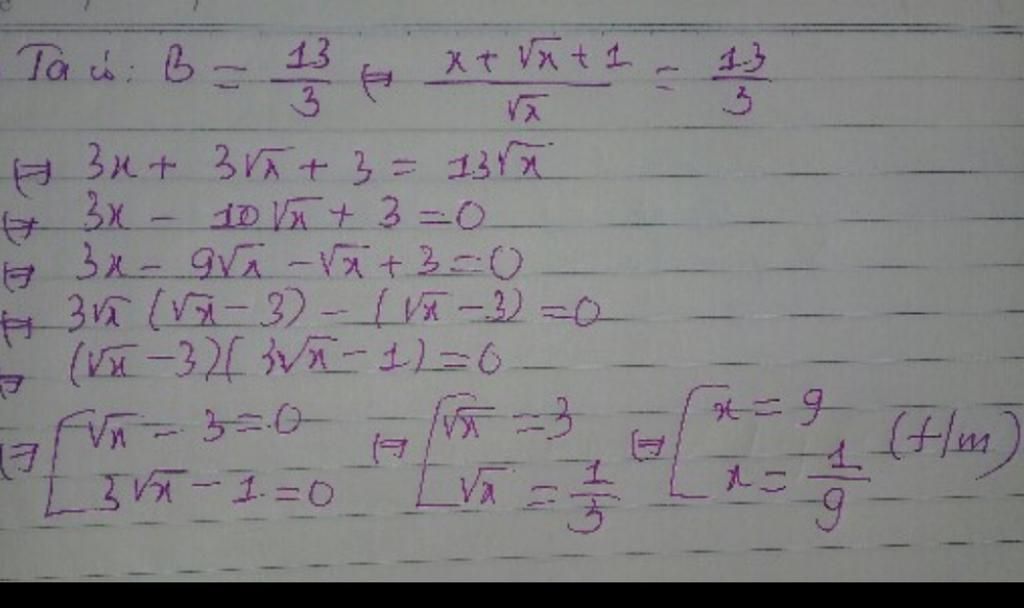 Ta có: B = 13/3 ⇔ (x + √x + 1)/√x = 13/3
⇔ 3x + 3√x + 3 = 13√x
⇔ 3x - 10√x + 3 = 0
⇔ 3x - 9√x - √x + 3 = 0
⇔ 3√x (√x - 3) - (√x - 3) = 0
⇔ (√x - 3)(3√x - 1) = 0
⇔ [ √x - 3 = 0 ⇔ [ √x = 3 ⇔ [ x = 9 (t/m)
3√x - 1 = 0 √x = 1/3 x = 1/9